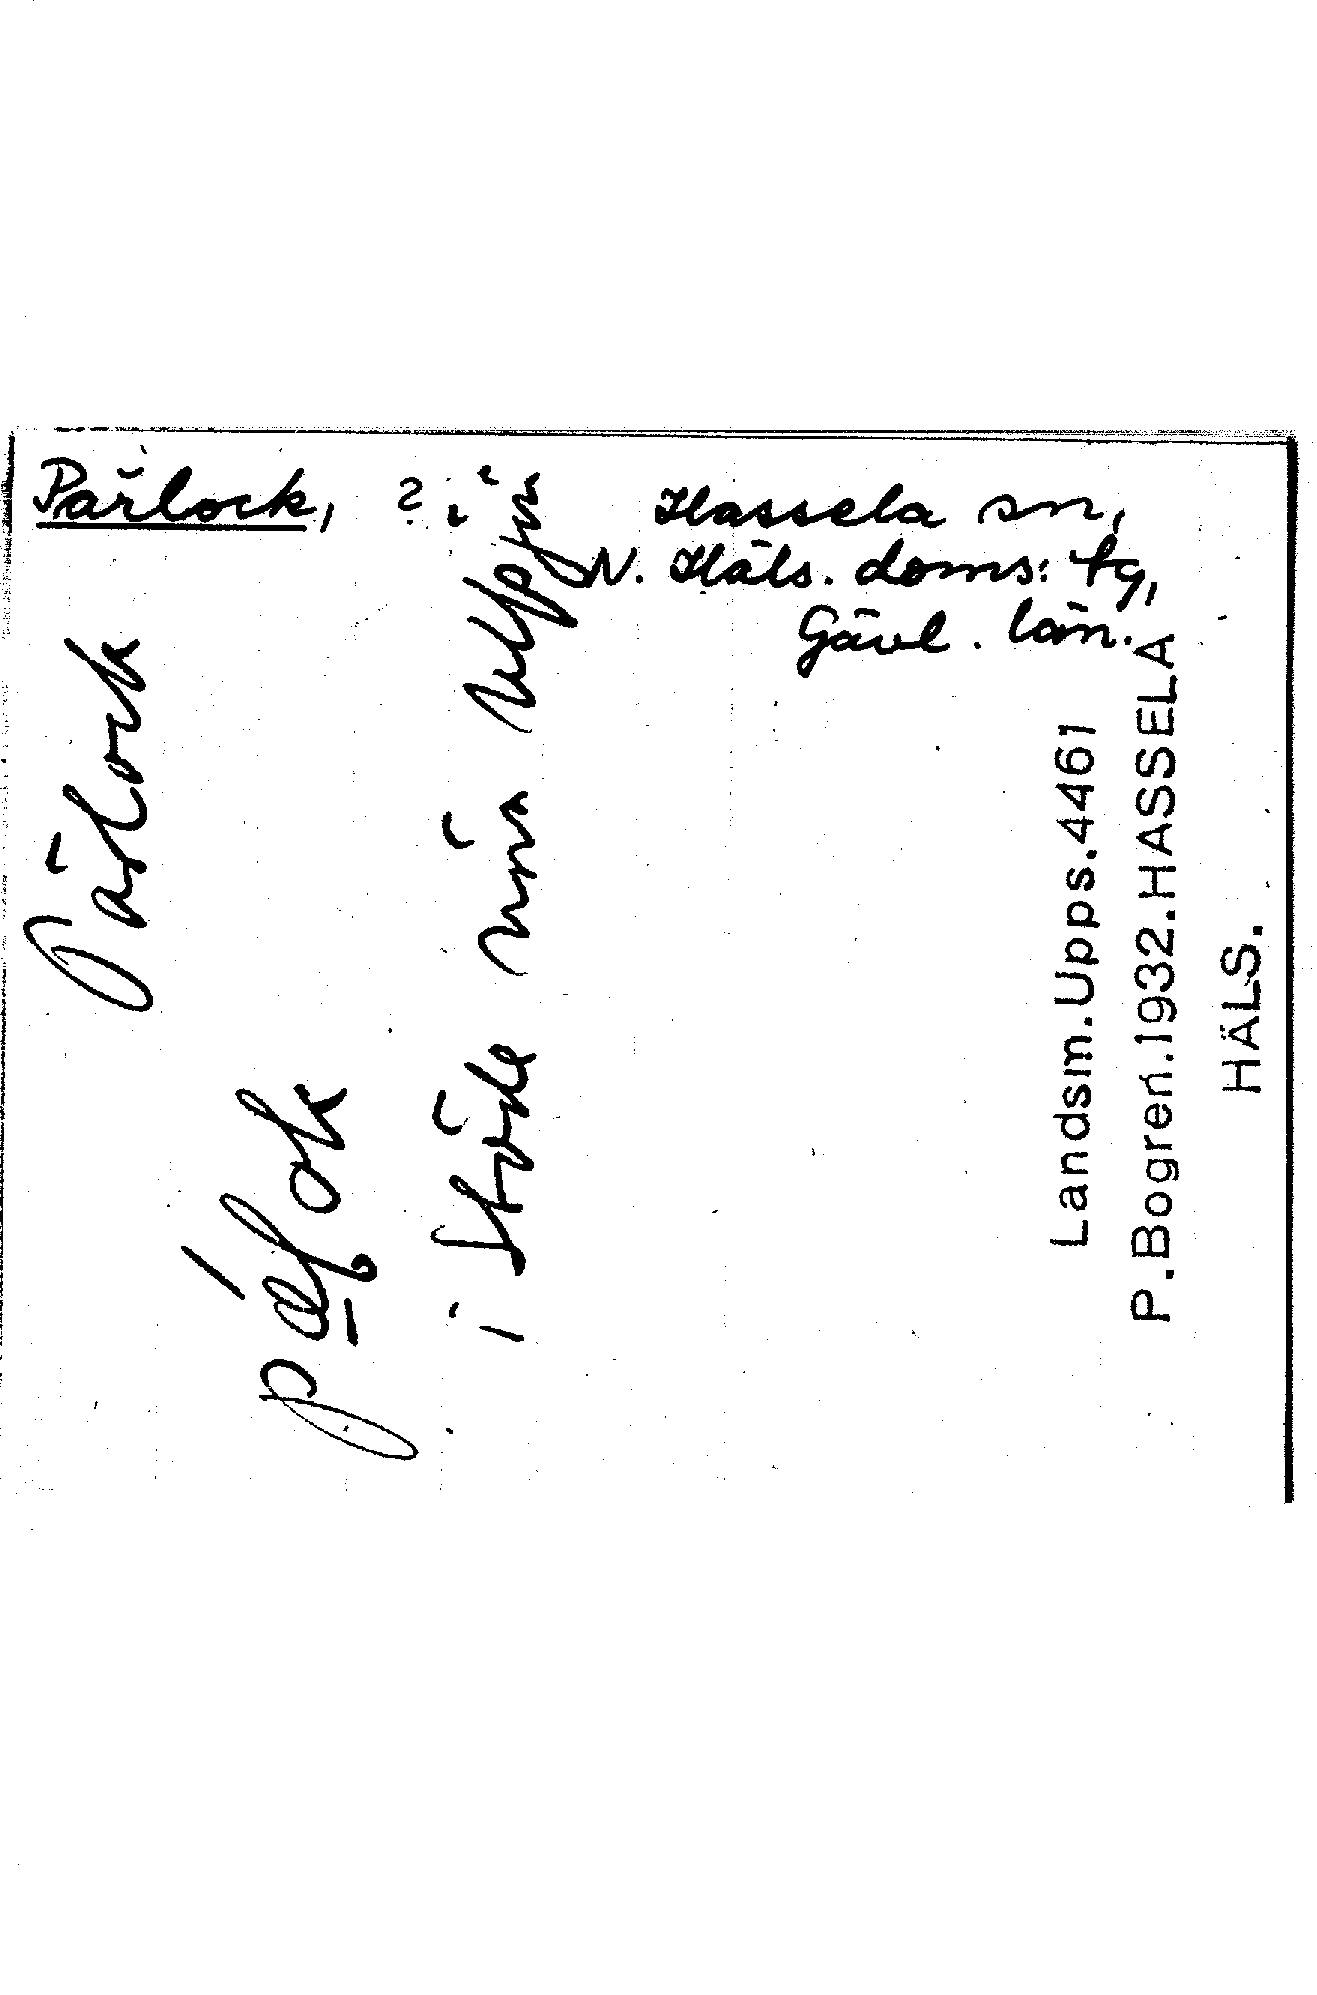 Pärlock, ?
Hassela sn,
N. Häls. doms: tg,
Gävl. län.
Pärlock
i Stöde nära
Landsm.Upps.4461
P.Bogren.1932.HASSELA
HÄLS.